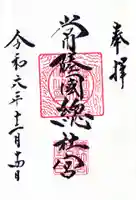 奉拝
常陸國總社宮
令和六年十二月十四日